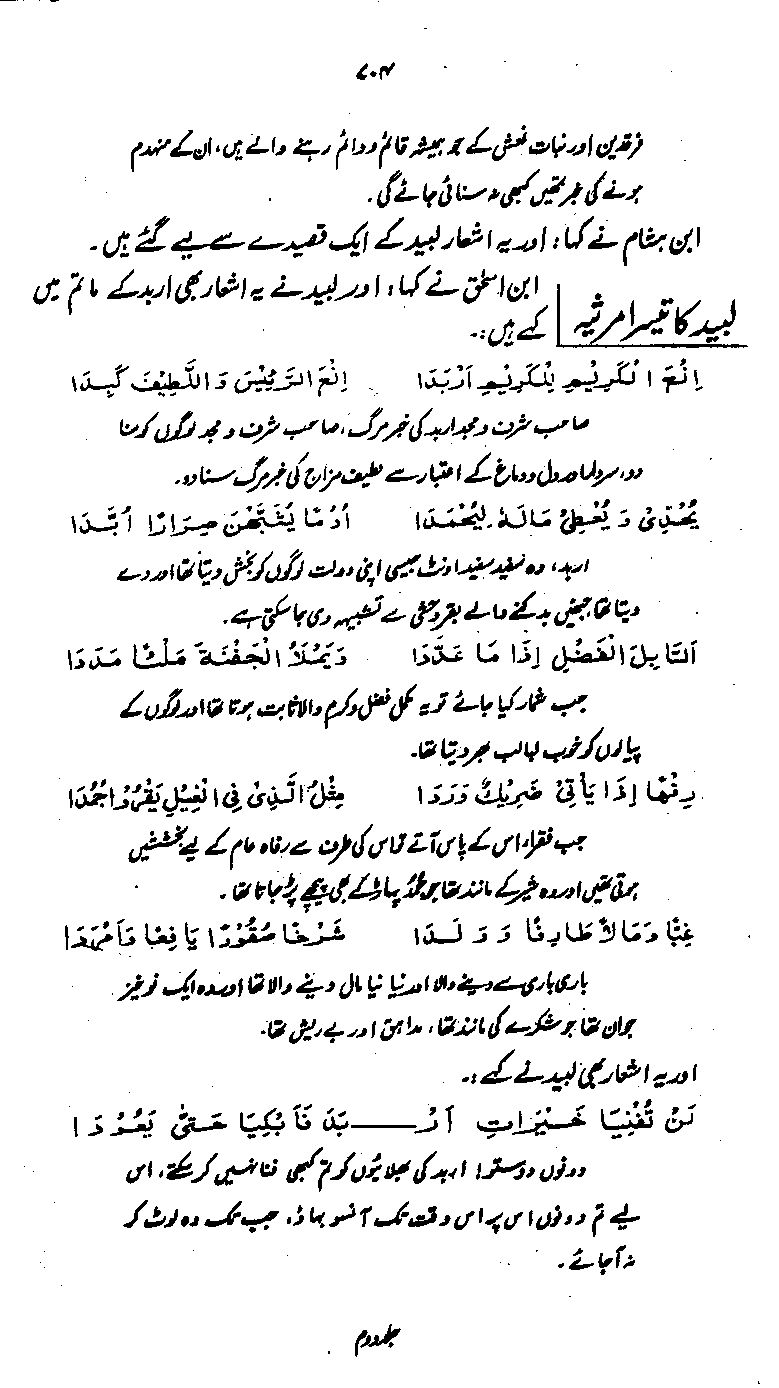 ۷۰۴
فرقدین اور نبات نعش کے جو ہمیشہ قائم و دائم رہنے والے ہیں، ان کے منہدم
ہونے کی خبر تمھیں کبھی نہ سنائی جائے گی۔
ابن ہشام نے کہا: اور یہ اشعار لبید کے ایک قصیدے سے لیے گئے ہیں۔
لبید کا تیسرا مرثیہ
ابن اسحٰق نے کہا: اور لبید نے یہ اشعار بھی اربد کے ماتم میں
کہے ہیں:۔
اِنْعَ الْكَرِيْمِ لِلْكَرِيْمِ اَرْبَدَا اِنْعَ الرَّئِيْسَ وَ اللَّطِيْفَ كَبِدَا
صاحب شرف و مجد اربد کی خبر مرگ، صاحب شرف و مجد لوگوں کو سنا
دو، سردار اور دل و دماغ کے اعتبار سے لطیف مزاج کی خبر مرگ سنا دو۔
يُحْذِىْ وَ يُعْطِىْ مَالَهٗ لِيُحْمَدَا اُدْمًا يُشَبَّهْنَ صِوَارًا اُبَّدَا
اربد، وہ سفید سفید اونٹ جیسی اپنی دولت لوگوں کو بخش دیتا تھا اور دے
دیتا تھا جنھیں بدکنے والے بقر وحشی سے تشبیہ دی جا سکتی ہے۔
اَلسَّابِلَ الْفَضْلِ اِذَا مَا عَدَّدَا وَ يَمْلَاُ الْجَفْنَةَ مَلْئًا مَدَدَا
جب شمار کیا جائے تو یہ مکمل فضل و کرم والا ثابت ہوتا تھا اور لوگوں کے
پیالوں کو خوب لبالب بھر دیتا تھا۔
رِفْهًا اِذَا يَأْتِىْ ضَرِيْكٌ وَرَدَا مِثْلُ الَّذِىْ فِى الْغِيْلِ يَقْرُوْ جُمُدَا
جب فقراء اس کے پاس آتے تو اس کی طرف سے رفاہ عام کے لیے بخششیں
ہوتی تھیں اور وہ شیر کے مانند تھا جو جُمد پہاڑ کے بھی پیچھے پڑ جاتا تھا۔
غِبًّا وَ مَالًا طَارِفًا وَ وَلَدَا شَرْخًا صُقُوْرًا يَافِعًا وَ اَمْرَدَا
باری باری سے دینے والا اور نیا نیا مال دینے والا تھا اور وہ ایک نوخیز
جوان تھا جو شکرے کی مانند تھا، مراہق اور بے ریش تھا۔
اور یہ اشعار بھی لبید نے کہے:۔
لَنْ تُفْنِيَا خَيْرَاتِ اَرْ ـــــ بَدَ فَابْكِيَا حَتّٰى يَعُوْدَا
دونوں دوستو! اربد کی بھلائیوں کو تم کبھی فنا نہیں کر سکتے، اس
لیے تم دونوں اس پر اس وقت تک آنسو بہاؤ، جب تک وہ لوٹ کر
نہ آجائے۔
جلد دوم